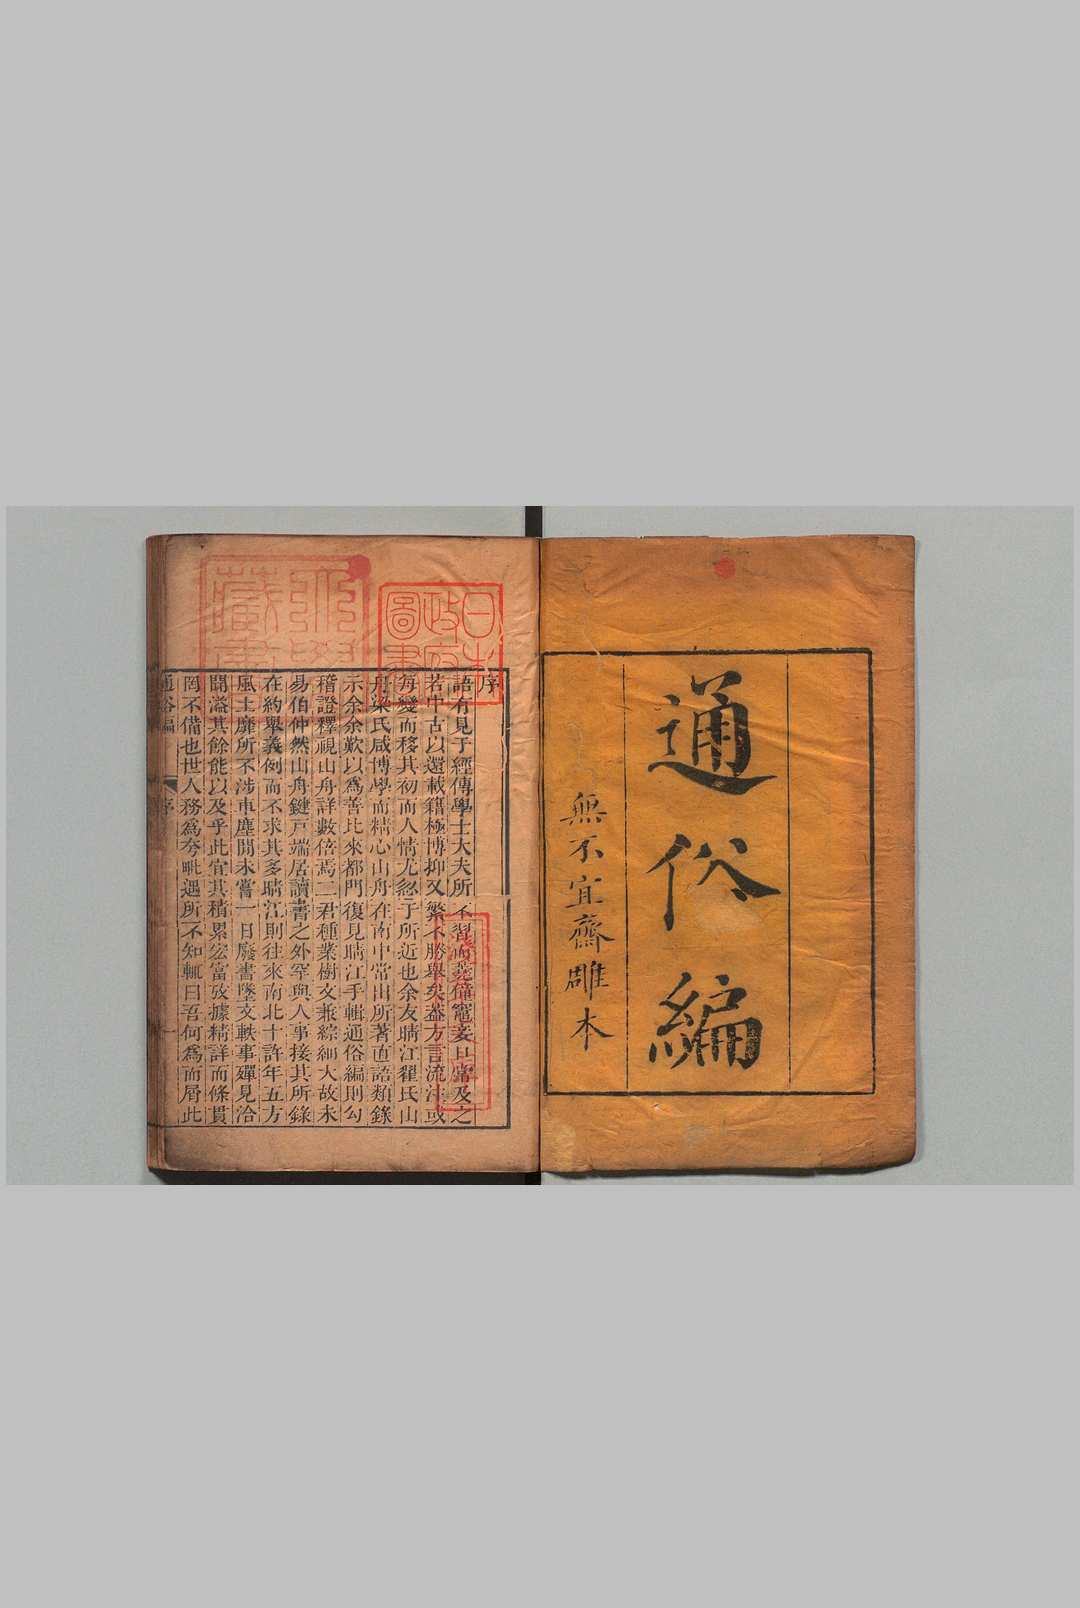 通俗編
無不宜齋雕本
日本
政府
圖書
序
語有見于經傳學士大夫所不習而蕘僮竈妾口常及之
若中古以還載籍極博抑又繁不勝舉矣蓋方言流注或
每變而移其初而人情尤忽于所近也余友晴江翟氏山
舟梁氏咸博學而精心山舟在南中常出所著直語類錄
示余余歎以為善比來都門復見晴江手輯通俗編則勾
稽證釋視山舟詳數倍焉二君種業樹文兼綜細大故未
易伯仲然山舟鍵戸端居讀書之外罕與人事接其所錄
在約舉義例而不求其多晴江則往來南北十許年五方
風土靡所不涉車塵間未嘗一日廢書墜文軼事殫見洽
聞溢其餘能以及乎此宜其積累宏富攷據精詳而條貫
罔不備也世人務為夸毗遇所不知輒曰吾何為而屑此
通俗編
序
一